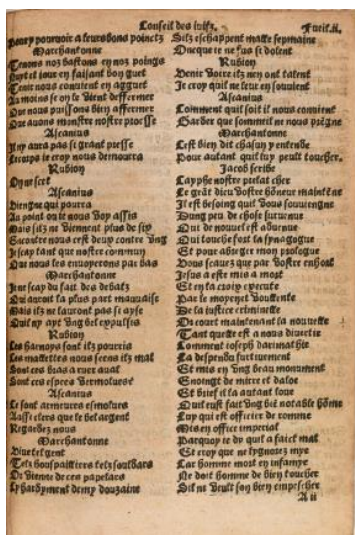 Conseil des iuifz. Fueil.ii.
pour pouruoir a leurs bons poinctz
Marchantonne
Tenons noz bastons en noz poings
Nuyt et iour en faisant bon guet
Tenir nous conuient en agguet
Au moins se on le vient defferrmer
Que nous puissons bien affermer
Que auons monstre nostre proesse
Ascanius
Il ny aura pas si grant presse
ie croy nous demourra
Rubion
On ne scet
Ascanius
Viengne qui pourra
Au point on te nous voy assis
Mais silz ne viennent plus de six
Encontre nous cest deux contre vng
Ie scay tant que nostre commun
Que nous les enuoyerons pas bas
Marchantonne
Ie ne scay du fait des debatz
Qui auroit la plus part mauuaise
Mais ilz ne lauront pas si ayse
Quil ny ayt vng bel expulsis
Rubion
Les harnoys sont ilz pourris
Les maillettes nous seens ilz mal
Sont ces bias a ruer aual
Sont ces espees vermolues
Ascanius
Ce sont armures esmolues
Aussi cleres que le bel argent
Regardez nous
Marchantonne
Viuet el gent
Telz houspailliers telz soulbars
Or vienne de ces papelars
Lyhardyment demy douzaine
Silz eschappent malle sepmaine
Oncques ie ne fus si dolent
Rubion
Venir vers itz nen ont talent
Ie croy quil ne leur en souuient
Ascanius
Comment quil soit il nous conuient
Garder que sommeil ne nous preigne
Marchantonne
Cest bien dit chascun y entende
Pour autant quil luy peult toucher.
Jacob scribe
Cayphe nostre prelat cher
Le grãt dieu vostre hõneur maintẽne
Il est besoing quil vous souuiengne
Dung peu de chose suruenue
Qui de nouuel est aduenue
Qui touche fort la synagogue
Et pour abreger mon prologue
Vous scauez que par vostre enhort
Iesus a este mis a mort
Et en la croix execute
Par le moyen et voulente
De la iustice criminelle
Or court maintenant la nouuelle
Tant quelle est a nous diuertie
Comment ioseph darimathie
La despendu furtiuement
Et mis en vng beau monument
Enoingt de mirre et daloe
Et brief il la autant loue
Quil eust fait vng bie notable hõme
Luy qui est officier de romme
Mis en office imperial
Parquoy ie dy quil a faict mal
Et croy que ne lygnorez mye
Car homme mort en infamye
Ne doit homme de bien toucher
Sil ne veult son bien empescher
A ii